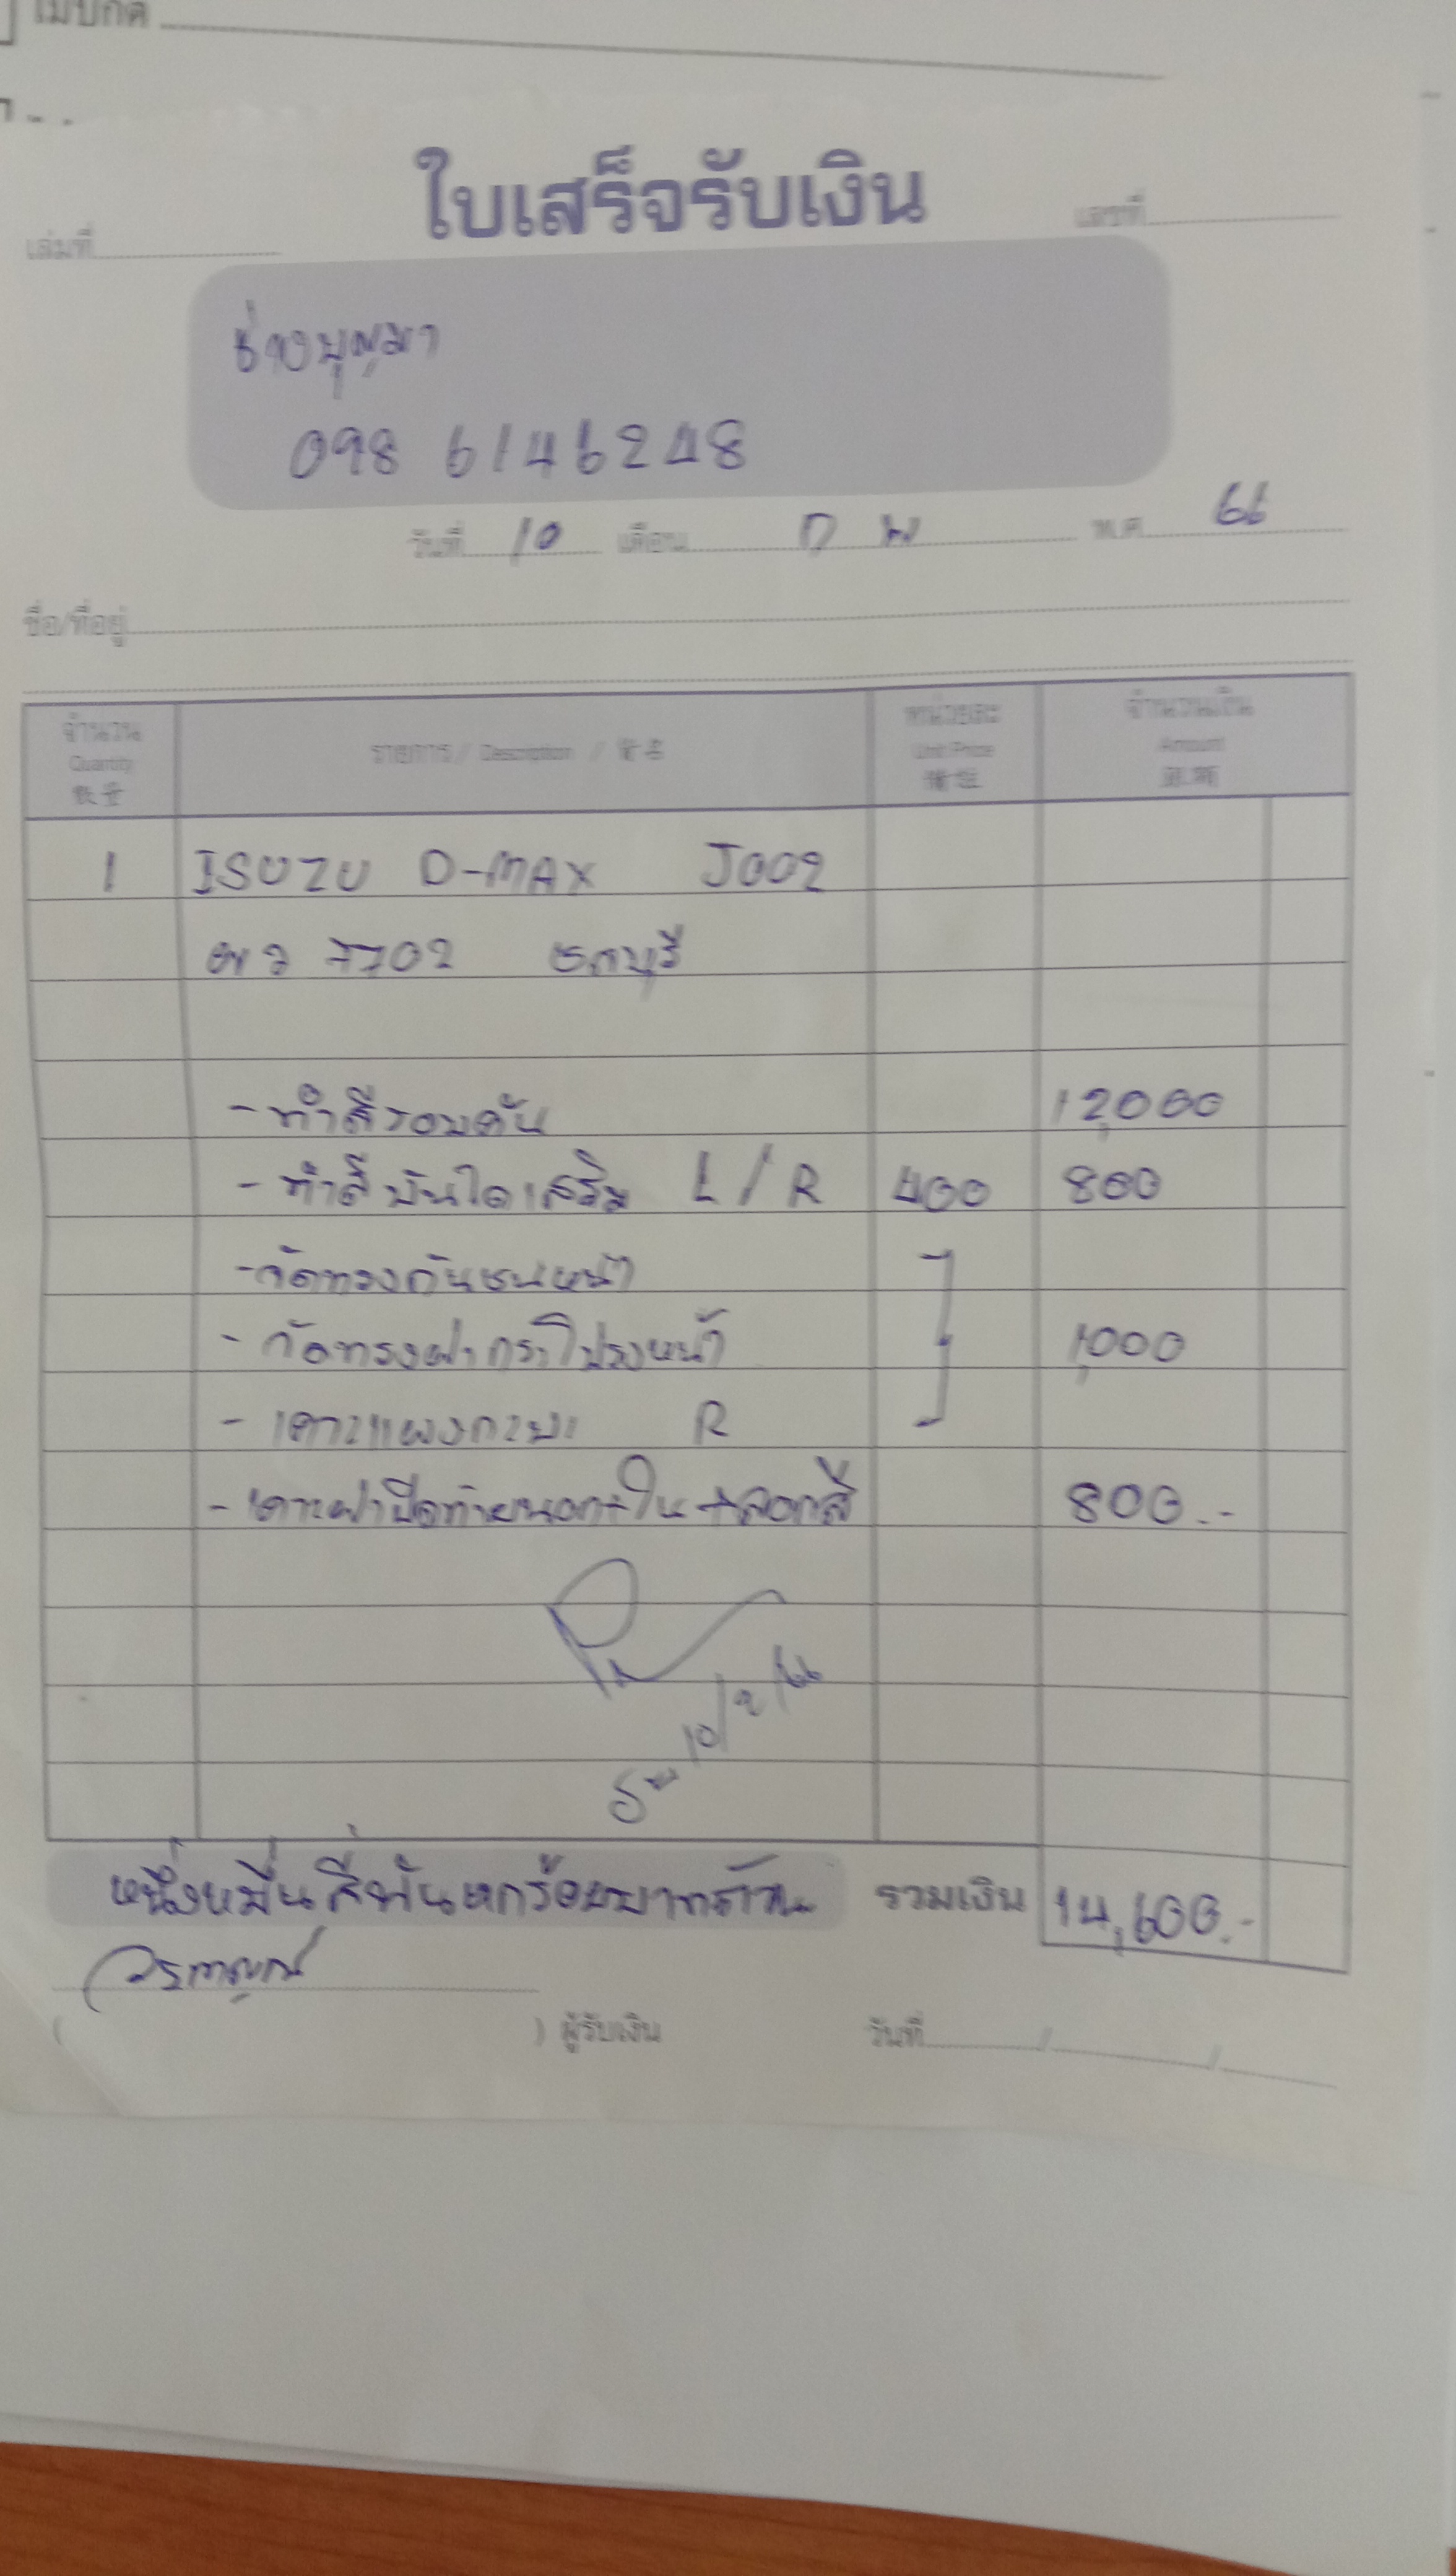 ใบเสร็จรับเงิน
เล่มที่ เลขที่
ช่างบุญมา
098 6146248
วันที่ 10 เดือน ก พ พ.ศ. 66
ชื่อ/ที่อยู่
จำนวน รายการ / Description หน่วยละ จำนวนเงิน
Quantity Unit Price Amount
1 ISUZU D-MAX J002
7702 ชลบุรี
- ทำสีรอบคัน 12,000
- ทำสีบันไดเสริม L / R 400 800
- จัดทรงกันชนหน้า
- จัดทรงฝากระโปรงหน้า 1,000
- เคาะแผงกระบะ R
- เคาะฝาปิดท้ายนอก+ใน +ลอกสี 800.-
10/2/66
หนึ่งหมื่นสี่พันหกร้อยบาทถ้วน รวมเงิน 14,600.-
( ) ผู้รับเงิน วันที่ / /